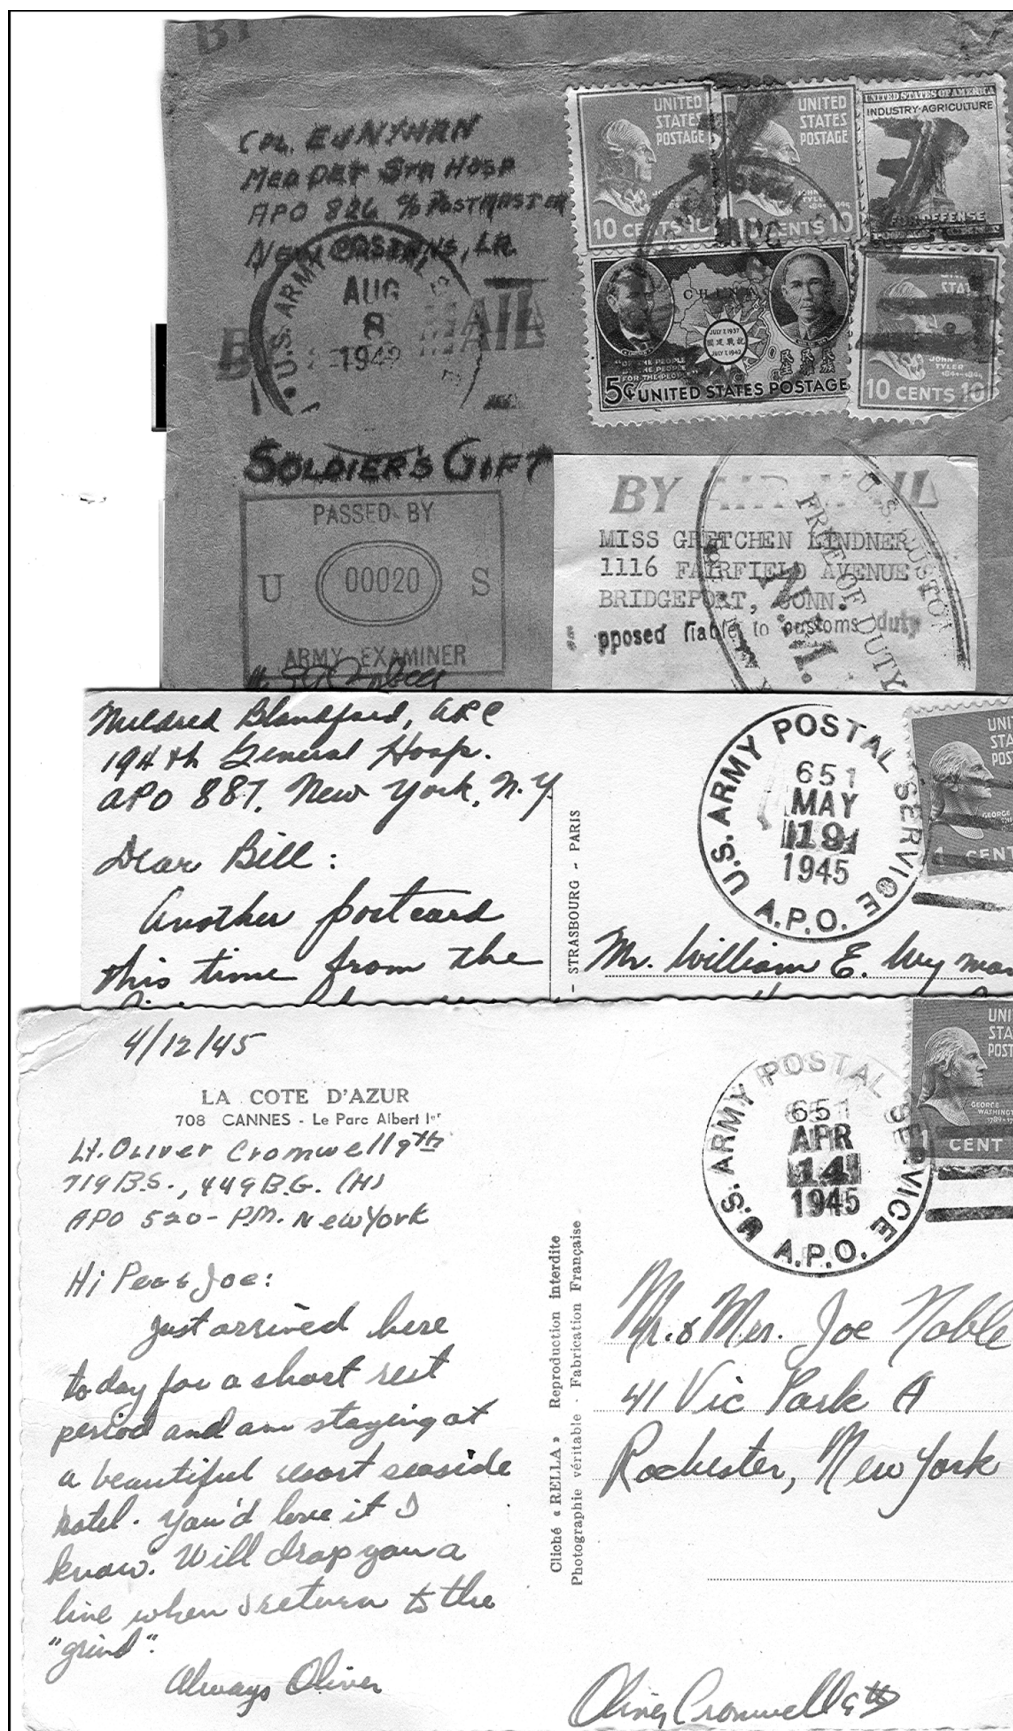 BY
CPL. ED NYHAN
MED DET STA HOSP
APO 826 c/o POSTMASTER
NEW ORLEANS, LA.
U.S. ARMY POSTAL
AUG
8
194
BY AIR MAIL
UNITED
STATES
POSTAGE
10 CENTS 10
UNITED
STATES
POSTAGE
JOHN
TYLER
1841-1845
CENTS 10
UNITED STATES OF AMERICA
INDUSTRY-AGRICULTURE
FOR DEFENSE
CHINA
JULY 7, 1937
抗戰建國
JULY 7, 1942
"OF THE PEOPLE
BY THE PEOPLE
FOR THE PEOPLE"
5¢ UNITED STATES POSTAGE
JOHN
TYLER
1841-1845
10 CENTS 10
SOLDIER'S GIFT
PASSED BY
U 00020 S
ARMY EXAMINER
BY AIR MAIL
MISS GRETCHEN LINDNER
1116 FAIRFIELD AVENUE
BRIDGEPORT, CONN.
pposed liable to customs duty
U.S. CUSTOM
FREE OF DUTY
N.Y.
Mildred Blandford, ARC
194th General Hosp.
APO 887, New York, N.Y.
Dear Bill:
Another postcard
this time from the
- STRASBOURG - PARIS
U.S. ARMY POSTAL SERVICE
651
MAY
19
1945
A.P.O.
UNI
STA
POS
GEORGE
1 CENT
Mr. William E. Wyman
4/12/45
LA COTE D'AZUR
708 CANNES - Le Parc Albert Ier
Lt. Oliver Cromwell 9th
719 B.S., 449 B.G. (H)
APO 520 - P.M. New York
Hi Peg & Joe:
Just arrived here
today for a short rest
period and am staying at
a beautiful resort seaside
hotel. You'd love it I
know. Will drop you a
line when I return to the
"grind".
Always Oliver
Cliché « RELLA » Reproduction interdite
Photographie véritable - Fabrication Française
U.S. ARMY POSTAL SERVICE
651
APR
14
1945
A.P.O.
UNI
STA
POST
GEORGE
WASHING
1789-17
1 CENT
Mr. & Mrs. Joe Noble
41 Vic Park A
Rochester, New York
Oliver Cromwell 9th